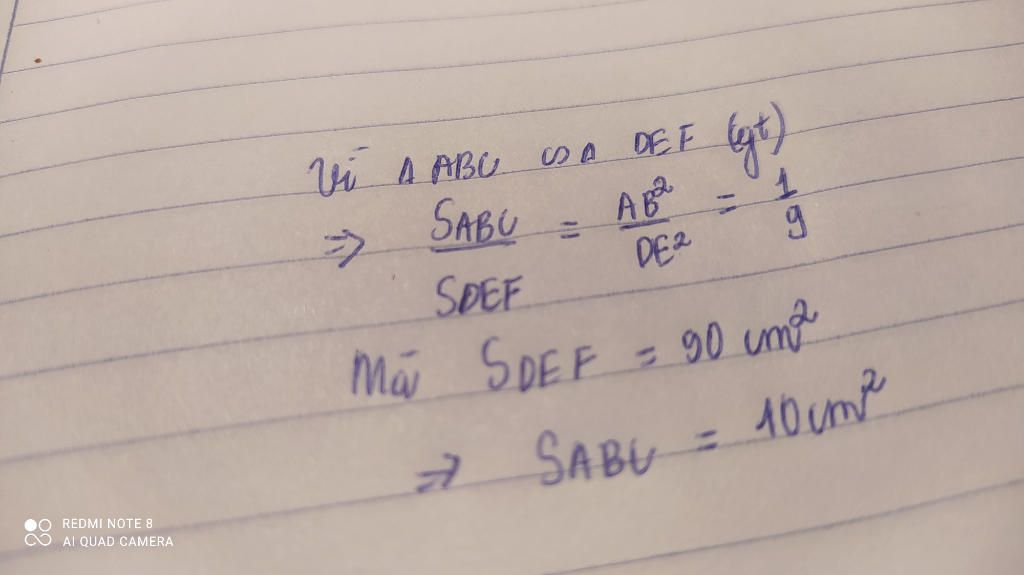 Vì Δ ABC ∽ Δ DEF (gt)
⇒ SABC/SDEF = AB²/DE² = 1/9
Mà SDEF = 90 cm²
⇒ SABC = 10cm²
REDMI NOTE 8
AI QUAD CAMERA